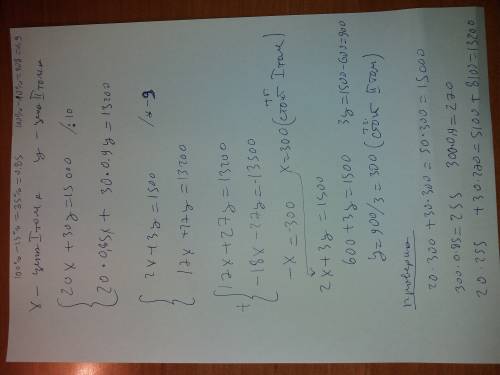 100%-15%=85%=0.85 100%-10%=90%=0.9
x - цена I тома y - цена II тома
20x+30y=15000 /:10
20·0.85x + 30·0.9y=13200
2x+3y=1500 /*-9
17x+27y=13200
17x+27y=13200
+
-18x-27y=-13500
-x=-300 x=300 (стоит I том)
2x+3y=1500
600+3y=1500 3y=1500-600=900
y=900/3=300 (стоит II том)
проверка
20·300+30·300=50·300=15000
300·0.85=255 300·0.9=270
20·255 +30·270=5100+8100=13200